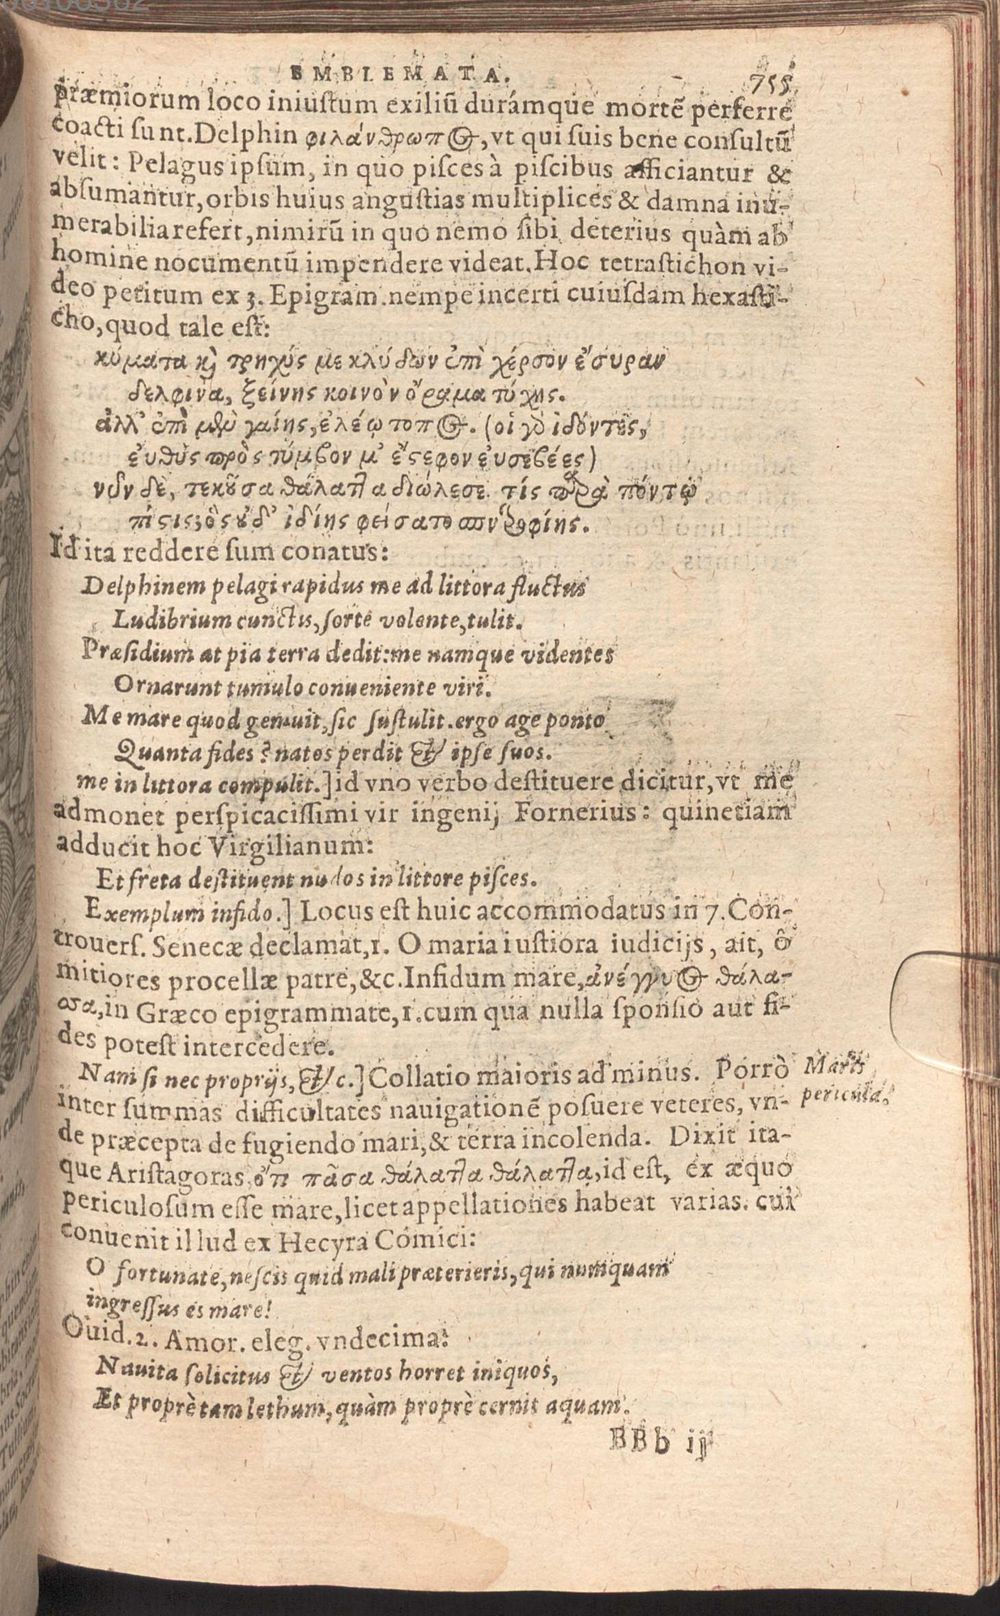 EMBLEMATA. 755
præmiorum loco iniustum exiliū durámque mortē perferre
coacti sunt. Delphin φιλάνθρωπος, vt qui suis bene consultū
velit: Pelagus ipsum, in quo pisces à piscibus afficiantur &
absumantur, orbis huius angustias multiplices & damna innu-
merabilia refert, nimirū in quo nemo sibi deterius quàm ab
homine nocumentū impendere videat. Hoc tetrastichon vi-
deo petitum ex 3. Epigram. nempe incerti cuiusdam hexasti-
cho, quod tale est:
κύματα καὶ τρηχύς με κλύδων ἐπὶ χέρσον ἔσυραν
δελφῖνα, ξείνης κοινὸν ὅραμα τύχης.
ἀλλ' ἐπὶ μὲν γαίης, ἐλέῳ τοπος. (οἱ γὸ ἰδόντες,
εὐθὺς πρὸς τύμβον μ' ἔςεφον εὐσεβέες)
νῦν δὲ, τεκοῦσα θάλαττα διώλεσε. τίς παρὰ πόντῳ
πίςις, ὃς οὐδ' ἰδίης φείσατο συντροφίης.
Id ita reddere sum conatus:
Delphinem pelagi rapidus me ad littora fluctus
Ludibrium cunctis, sorte volente, tulit.
Præsidium at pia terra dedit: me namque videntes
Ornarunt tumulo conueniente viri.
Me mare quod genuit, sic sustulit. ergo age ponto
Quanta fides? natos perdit & ipse suos.
me in littora compulit.] id vno verbo destituere dicitur, vt me
admonet perspicacissimi vir ingenij Fornerius: quinetiam
adducit hoc Virgilianum:
Et freta destituent nudos in littore pisces.
Exemplum infido.] Locus est huic accommodatus in 7. Con-
trouers. Senecæ declamat, 1. O maria iustiora iudicijs, ait, ô
mitiores procellæ patre, &c. Infidum mare, ἀνέγγυος θάλα-
σσα, in Græco epigrammate, 1. cum qua nulla sponsio aut fi-
des potest intercedere.
Nam si nec proprijs, &c.] Collatio maioris ad minus. Porrò
inter summas difficultates nauigationē posuere veteres, vn-
de præcepta de fugiendo mari, & terra incolenda. Dixit ita-
que Aristagoras, ὅτι πᾶσα θάλαττα θάλαττα, id est, ex æquo
periculosum esse mare, licet appellationes habeat varias. cui
conuenit illud ex Hecyra Comici:
O fortunate, nescis quid mali præterieris, qui numquam
ingressus es mare!
Ouid. 2. Amor. eleg. vndecima:
Nauita solicitus & ventos horret iniquos,
Et propè tam lethum, quàm propè cernit aquam.
BBb ij
Maris
pericula.